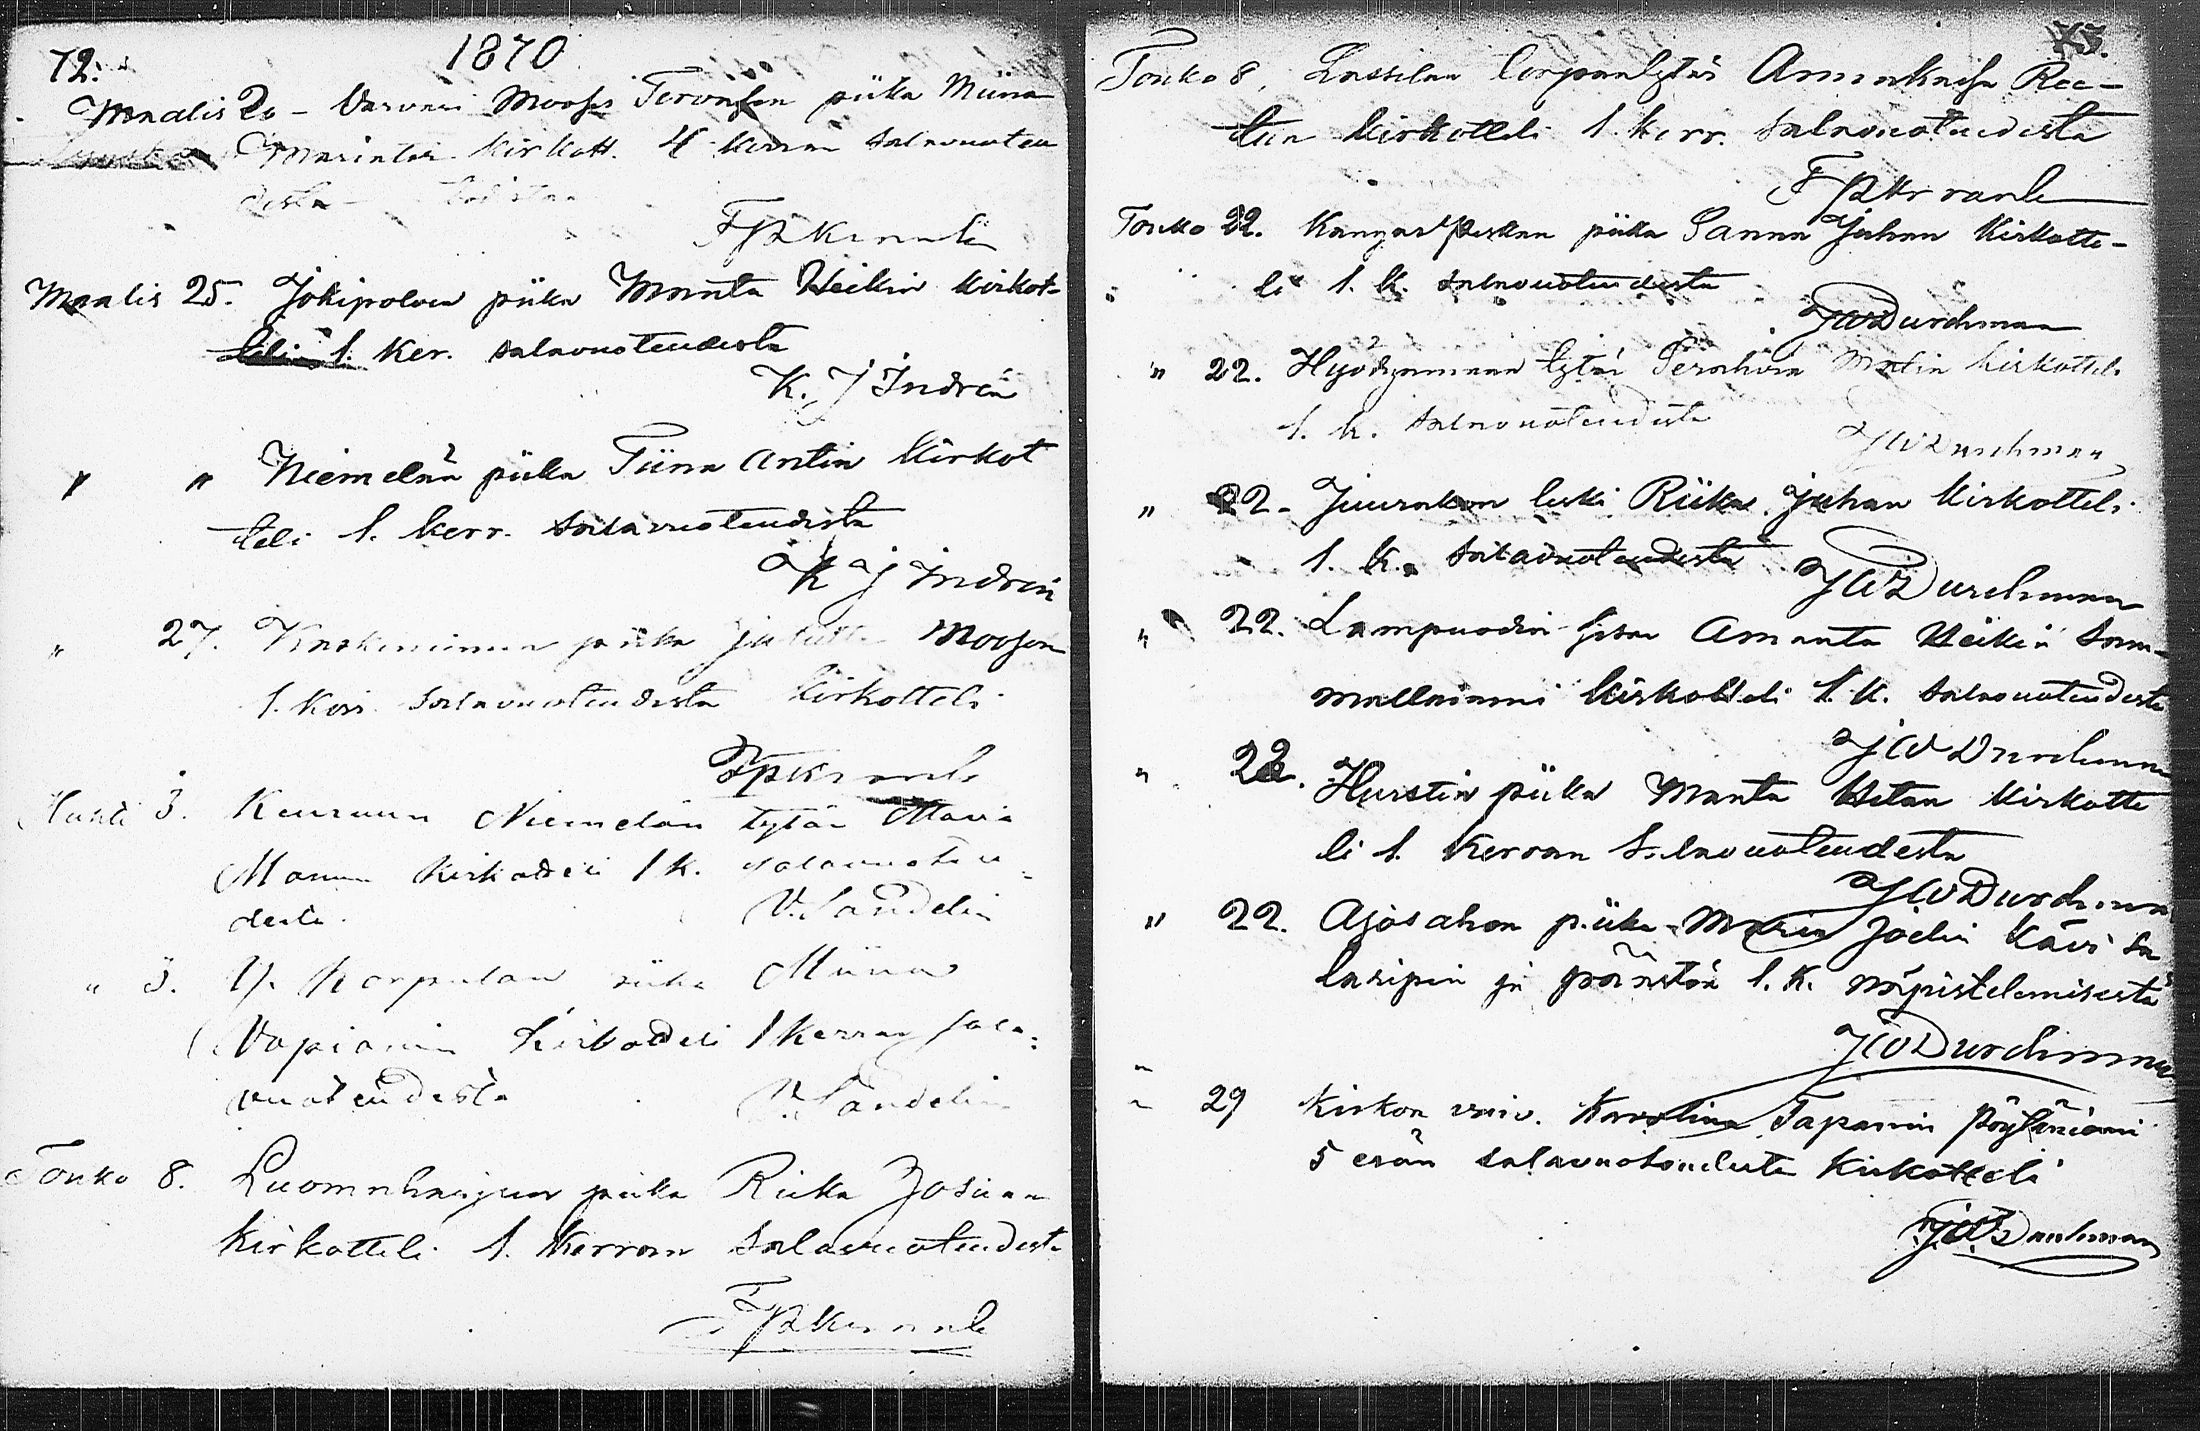 72.
1870
Maalis 20 - Varvari Mooses Tervosen piika Miina
Marintar Kirkott. 4 kerran salavuoteu
desta
F P Krank
Maalis 25. Jokipolven piika Manta Heikin kirkot-
teli 1. Ker. salavuoteudesta
K. J Indrén
" " Niemelän piika Tiina Antin Kirkot
teli 1. kerr. salavuoteudesta
K J Indrén
" 27. piika Moosen
1. Kerr. salavuoteudesta kirkotteli
F P Krank
Huhti 3. Keuruun Niemelän tytär Maria
Manun Kirkotteli 1 k. salavuoteu
desta. V. Sandelin
" 3. Y. Korpulan piika Miina
Vapianin Kirkotteli 1 kerran sala=
vuoteudesta V. Sandelin
Touko 8. piika Riika Josuan
Kirkotteli 1. Kerran Salavuoteudesta
F P Krank
73.
Touko 8, Lassilan torpantytär Annakaisa Ree-
tun kirkotteli 1. kerr. salavuoteudesta
F P Krank
Touko 22. Kangaspeskan piika Sanna Juhan Kirkotte-
" li 1. k. salavuoteudesta
J W Durchman
" 22. tytär Serahvia Matin kirkotteli
1. k. salavuoteudesta
J W Durchman
" 22 - Juurakon leski Riika Juhan Kirkotteli
1. k. salavuoteudesta
J W Durchman
" 22. Lampuodin Amanta Heikin Sam-
mallniemi kirkotteli 1. k. salavuoteudesta
J W Durchman
" 22. Hurstin piika Manta Hetan kirkotte
li 1. kerran salavuoteudesta
J W Durchman
" 22. Ajosahon piika Maria Joelin kävi sa
laripin ja päästön 1. k. näpistelemisestä
J W Durchman
" 29 Kirkon vaiv. Karolina Tapanin Pöyläniemi
5 erän salavuoteudesta Kirkotteli
J W Durchman